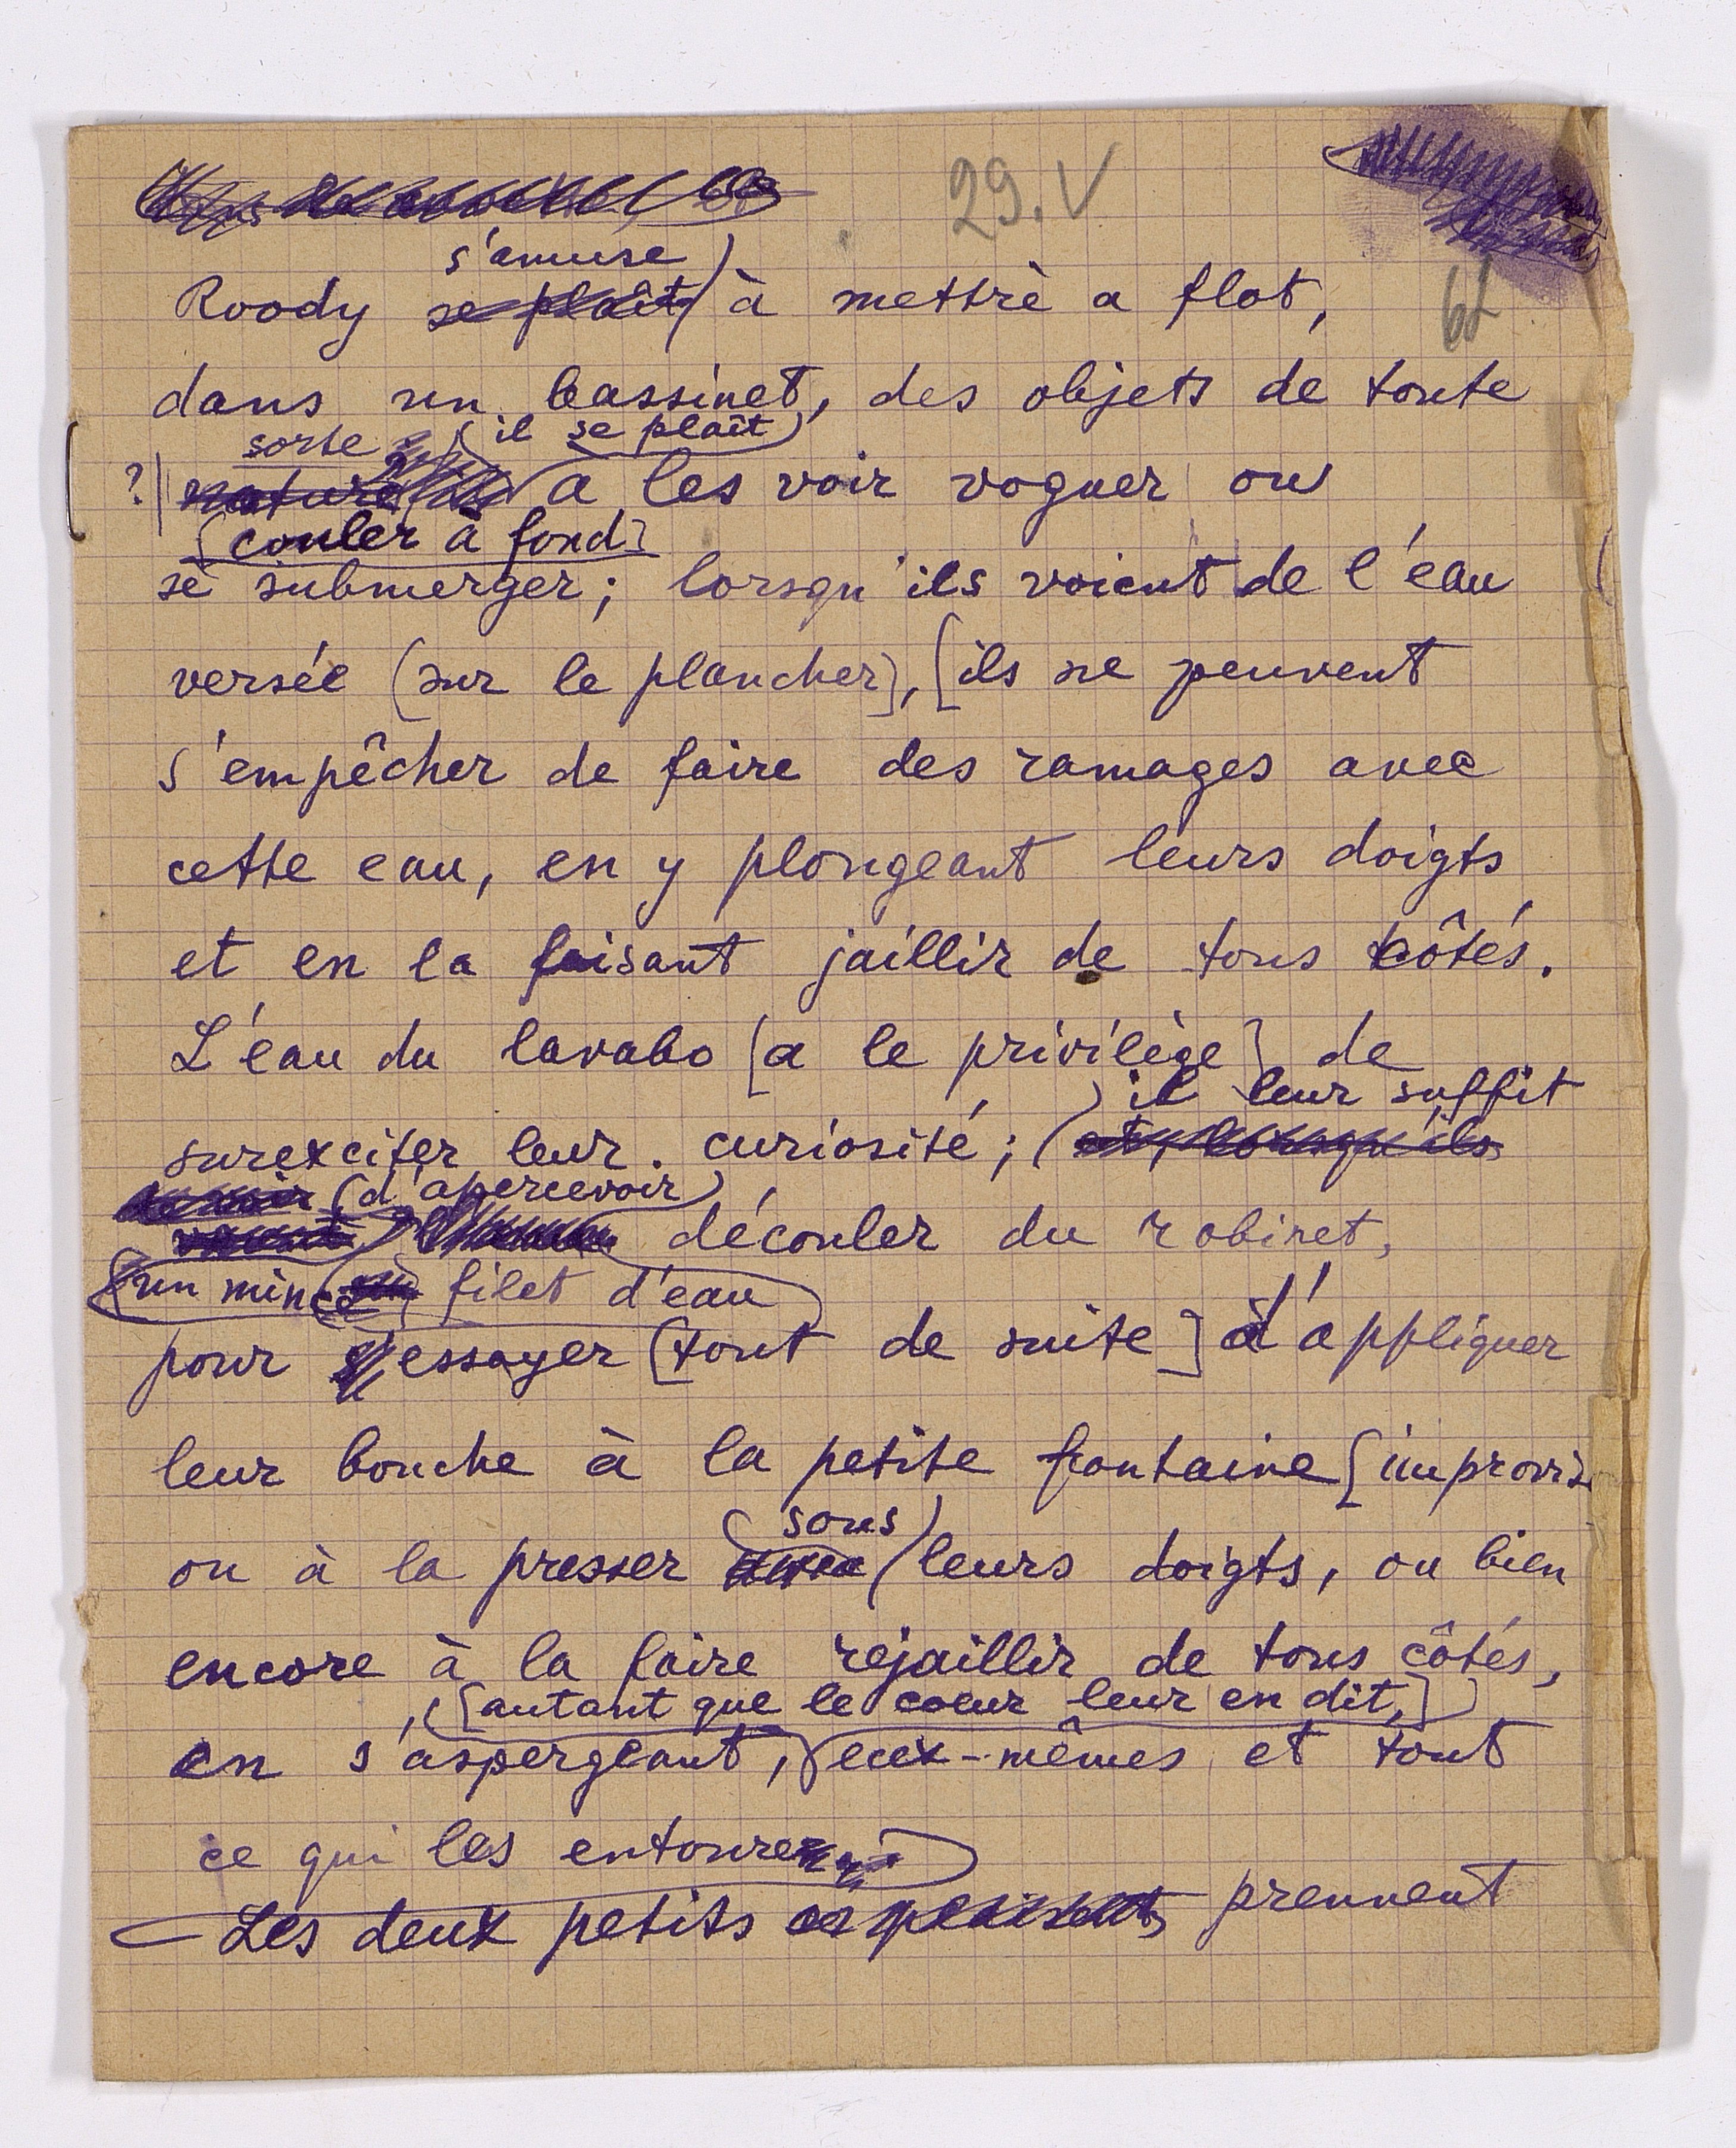 29.V
s'amuse)
Roody se plaît) à mettre a flot,
62
dans un bassinet, des objets de toute
sorte (il se plaît)
?| nature a les voir voguer ou
[couler à fond]
se submerger; lorsqu'ils voient de l'eau
versée (sur le plancher], [ils ne peuvent
s'empêcher de faire des ramages avec
cette eau, en y plongeant leurs doigts,
et en la faisant jaillir de tous côtés.
L'eau du lavabo [a le privilège] de
) il leur suffit
surexciter leur curiosité; (et, lorsqu'ils
(d'apercevoir)
découler du robinet,
[un mince filet d'eau)
pour essayer [tout de suite] d'appliquer
leur bouche à la petite fontaine [improvis
(sous)
ou à la presser avec (leurs doigts, ou bien
encore à la faire rejaillir de tous côtés,
,([autant que le cœur leur en dit,])
en s'aspergeant, eux-mêmes et tout
ce qui les entoure
Les deux petits prennent